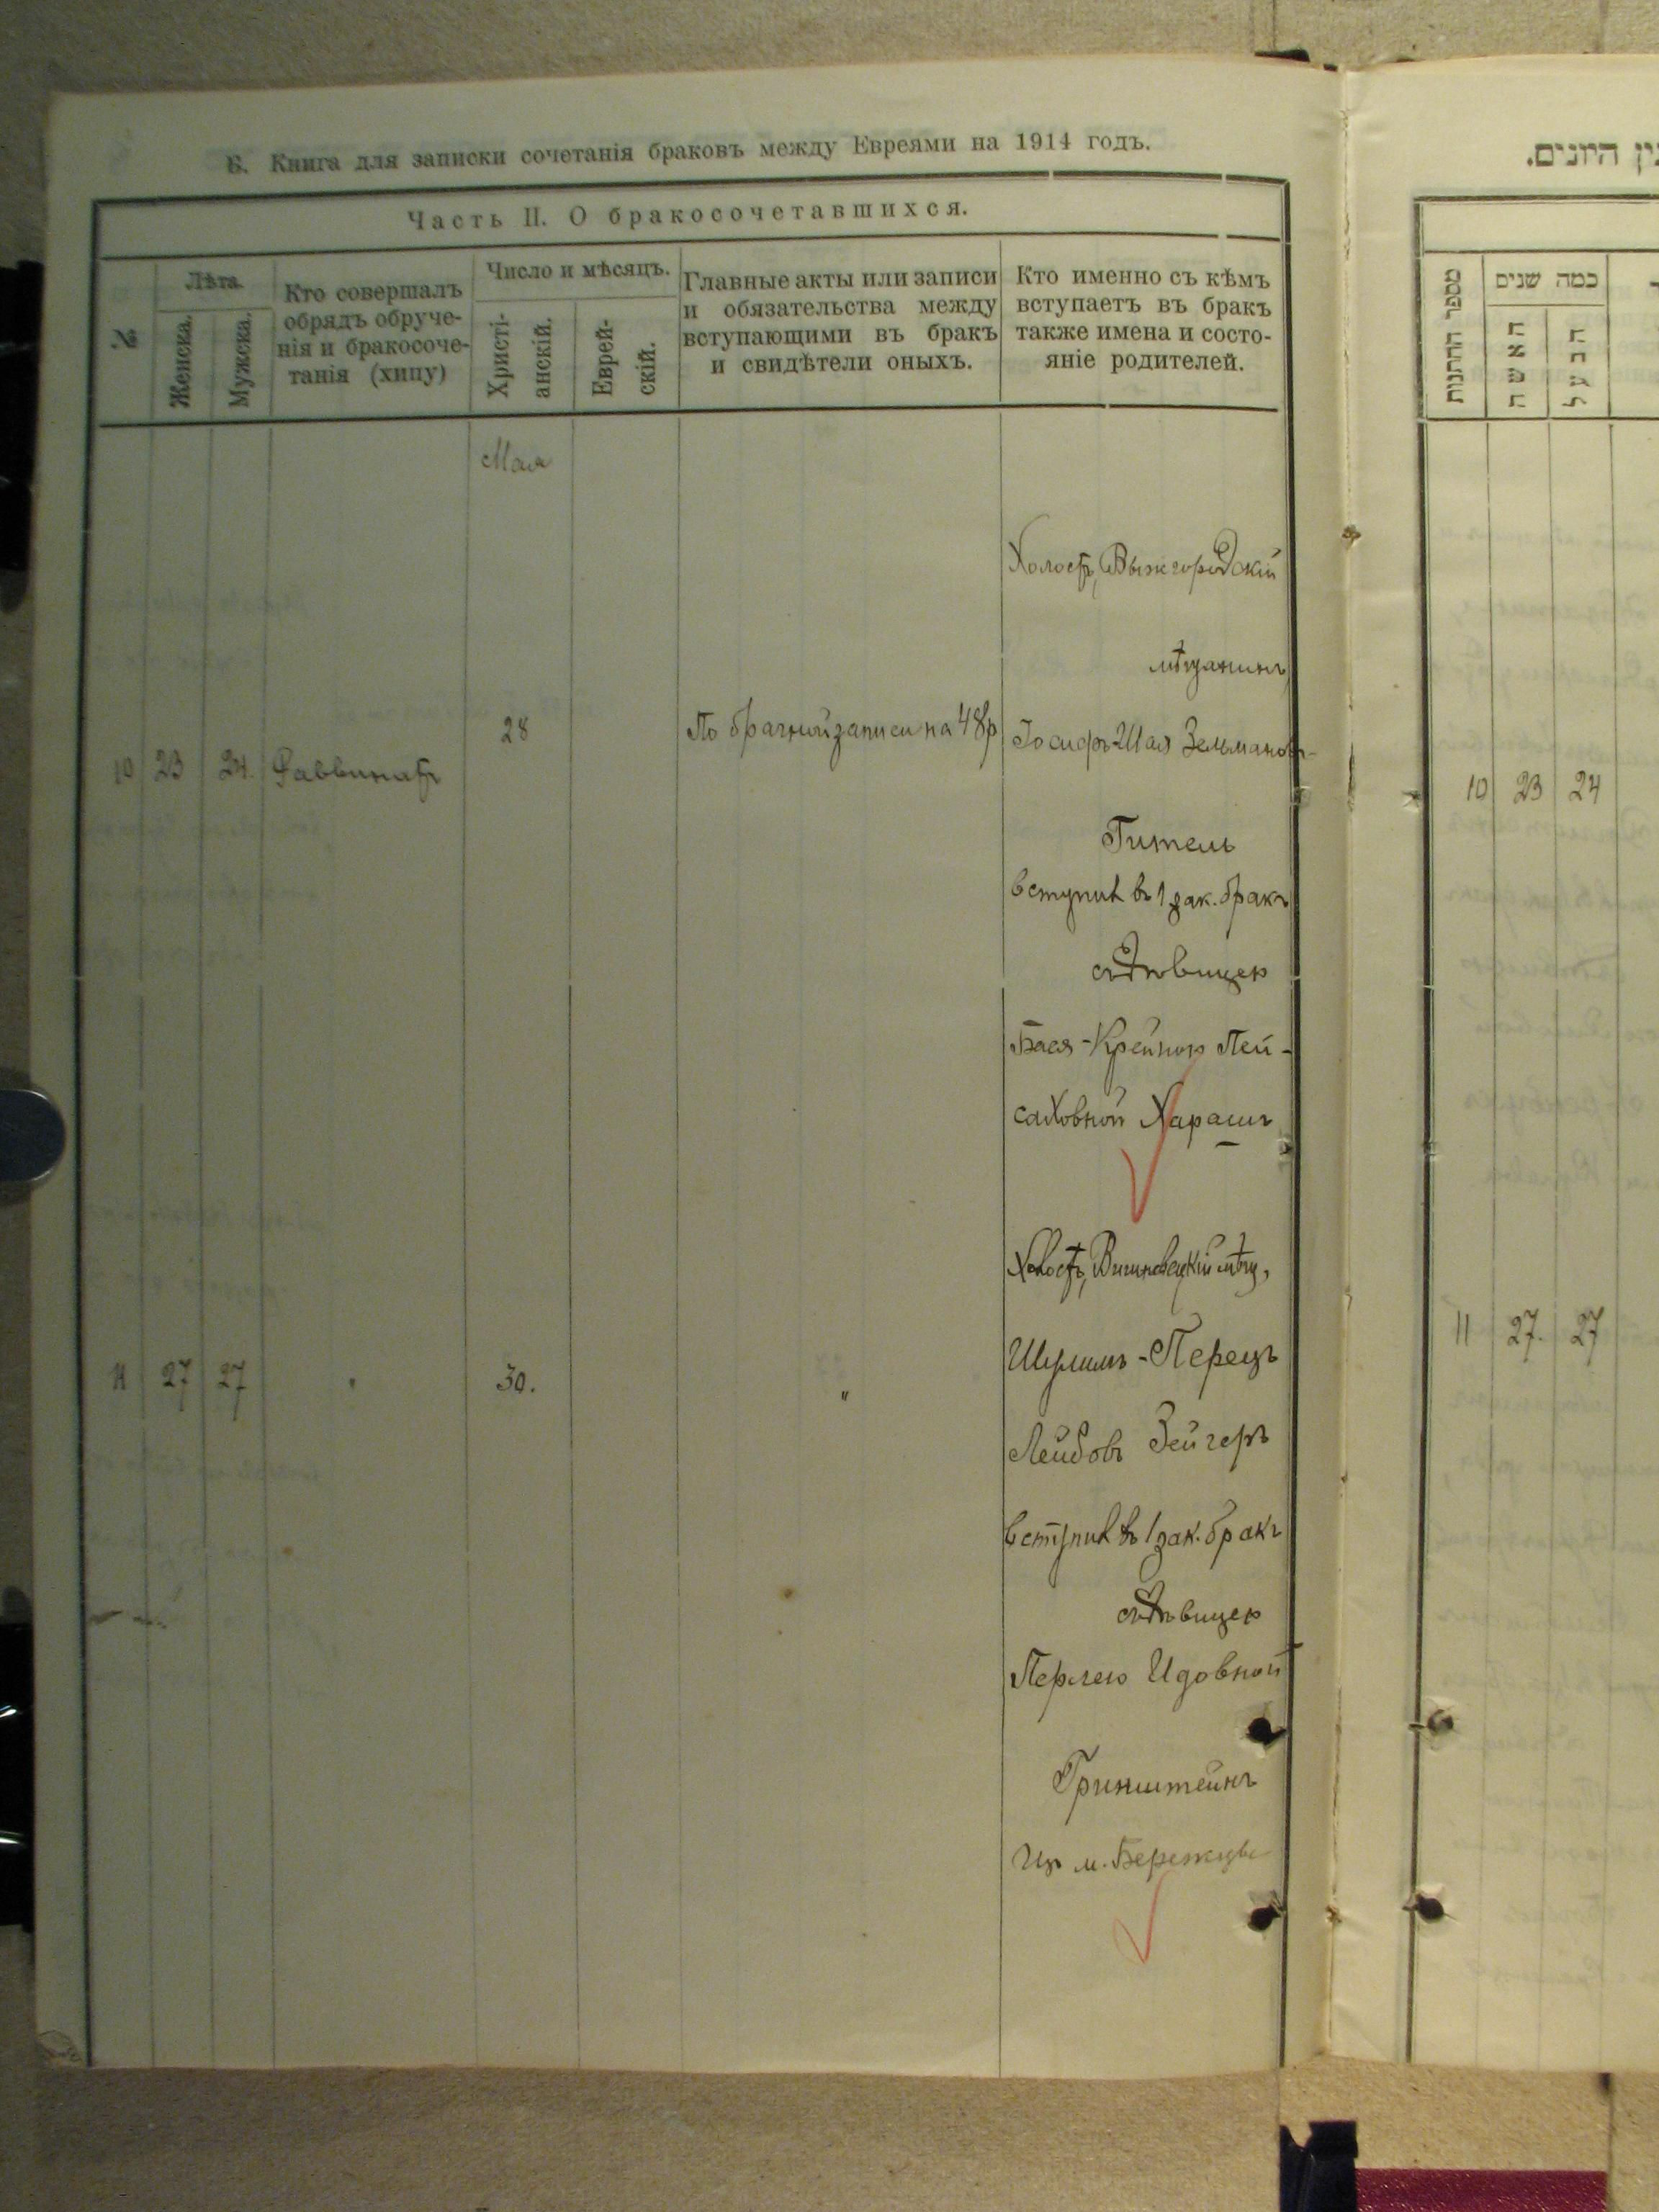 Б. Книга для записки сочетанія браковъ между Евреями на 1914 годъ.
Часть II. О бракосочетавшихся.
№
Лѣта.
Женска.
Мужска.
Кто совершалъ
обрядъ обруче-
нія и бракосоче-
танія (хипу)
Число и мѣсяцъ.
Христі-
анскій.
Еврей-
скій.
Главные акты или записи
и обязательства между
вступающими въ бракъ
и свидѣтели оныхъ.
Кто именно съ кѣмъ
вступаетъ въ бракъ
также имена и состо-
яніе родителей.
Мая
10 23 24. Раввинатъ 28 По брачной записи на 48 р
Холостъ, Вышгородскій
мѣщанинъ
Іосифъ-Шая Зельмановъ-
Гитель
вступил въ 1 зак. бракъ
съ дѣвицею
Бася-Крейною Пей-
саховной Харашъ
11 27 27 " 30. "
Холостъ, Вишневецкій мѣщ,
Шулимъ-Перецъ
Лейбовъ Зейгеръ
вступил въ 1 зак. бракъ
съ дѣвицею
Перлею Идовной
Гринштейнъ
Изъ м. Бережцы
ין היונים.
מספר החתנות
כמה שנים
האשה
הבעל
10 23 24
11 27. 27